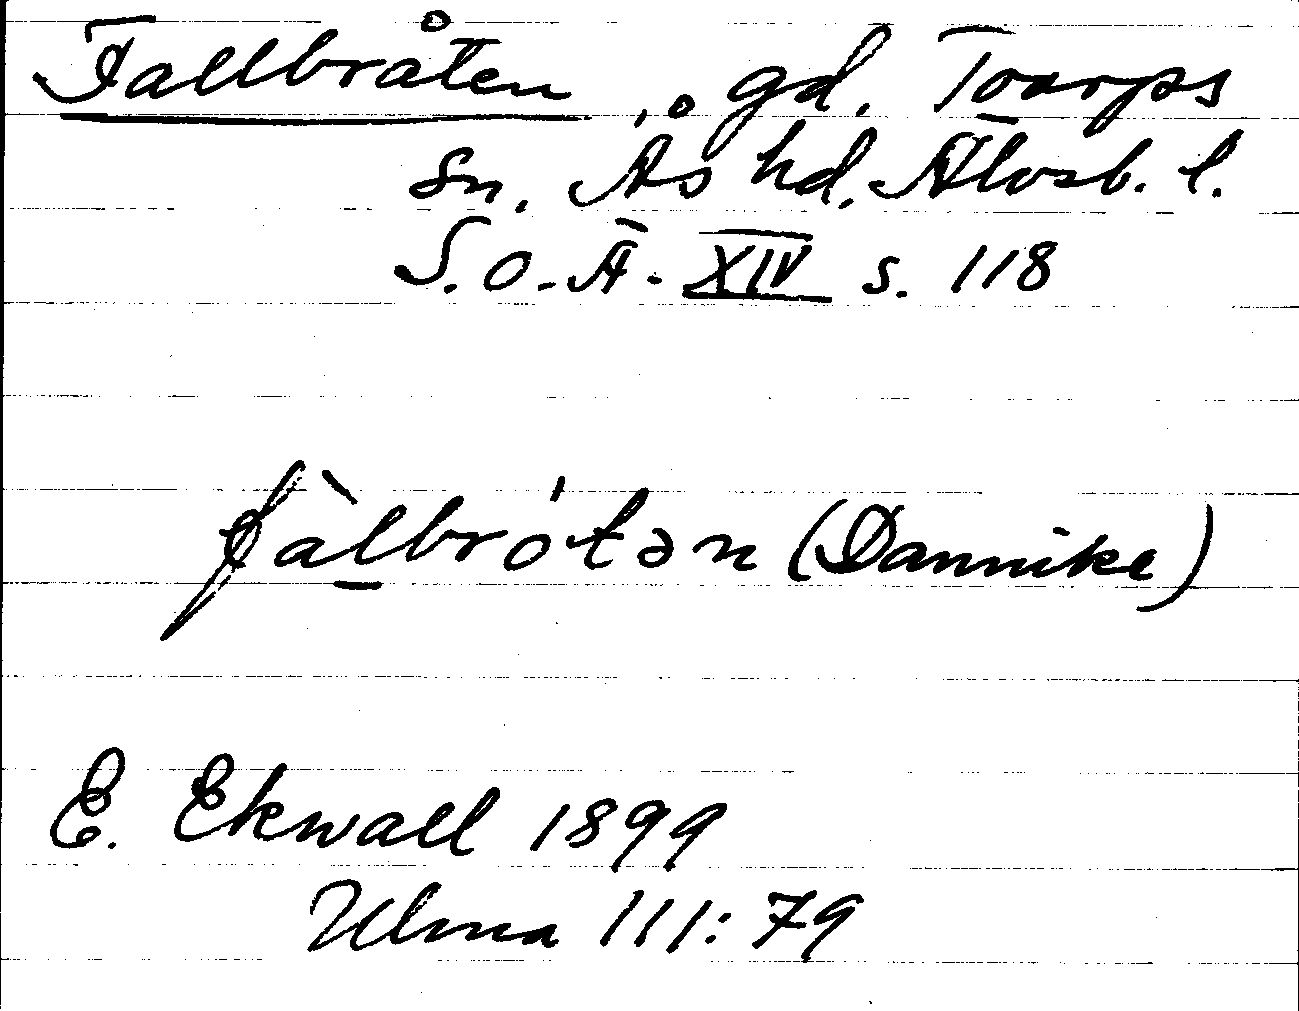 Fallbråten, gd, Toarps
sn. Ås hd. Älvsb. l.
S.O.Ä. XIV s. 118
fàlbrótən (Dannike)
E. Ekwall 1899
Ulma 111:79